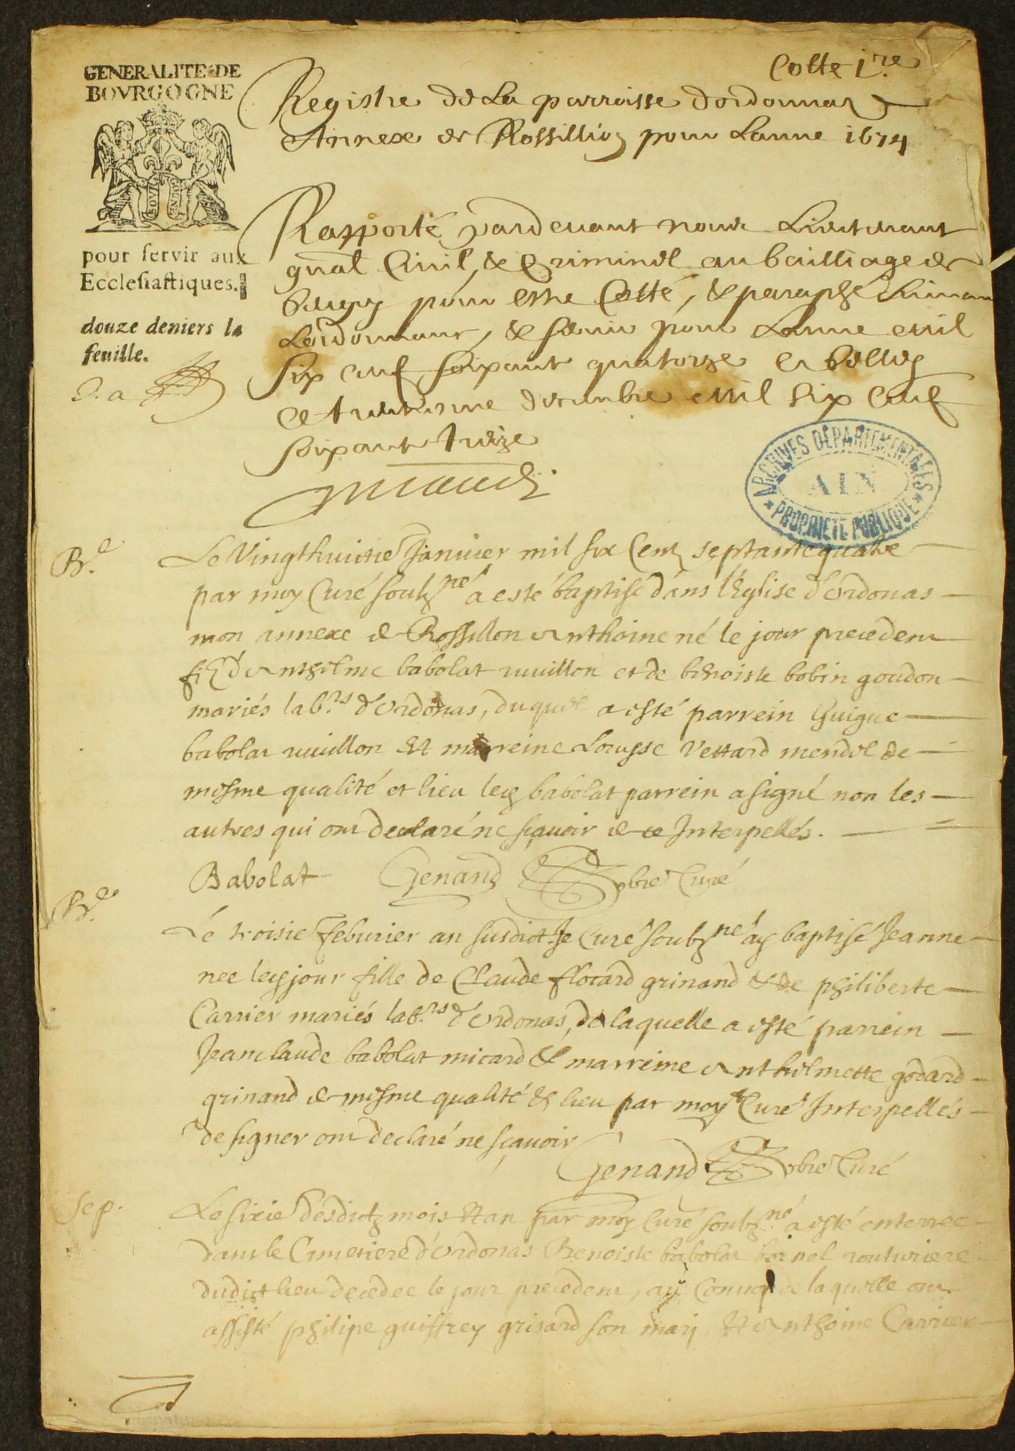 Cotte 1.re
GENERALITE DE
BOVRGOGNE
pour servir aux
Ecclesiastiques.
douze deniers la
feuille.
Registre de La parroisse dordonnas
Annexe de Rossillion pour Lanne 1674
Rapporté pardevant nous Lieutenant
gnal Civil & Criminel au bailliage de
bugey pour estre Cotté, & paraphé suivant
Lordonnance, & servir pour Lanne mil
six cent soixante quatorze a belley
ce trentiesme decembre mil six cent
soixante treize
ARCHIVES DÉPARTEMENTALES
AIN
PROPRIÉTÉ PUBLIQUE
Le Vingthuitie Janvier mil six Cent septante quatre
par moy Curé soubzné a esté baptisé dans l'Eglise d'Ordonas
mon annexe de Rossillon Anthoine né le jour precedent
filz d'Anthelme babolat vuillon et de benoiste bobin goudon
mariés lab.rs d'Ordonas, duquel a esté parrein Guigue
babolat vuillon Et marreine Vettard de
mesme qualité et lieu babolat parrein a signé non les
autres qui ont declaré ne sçavoir de ce Interpellés.
Babolat Genand Curé
Le troisie febvrier an susdict Je Curé soubzné ay baptisé Jeanne
nee jour fille de Claude flotard grinand & de philiberte
Carrier mariés lab.rs d'Ordonas, de laquelle a esté parrein
Jean claude babolat micard & marreine Anthelmette godard
grinand de mesme qualité & lieu par moy Curé Interpellés
de signer ont declaré ne sçavoir
Genand Curé
Sep.
Le sixie desdictz mois & an par moy Curé soubzné a esté enterree
dans le Cimetiere d'Ordonas Benoiste babolat
dudict lieu decedee le jour precedent, au Convoy de laquelle ont
assisté philipe guiffrey grisard son mary & Anthoine Carrier